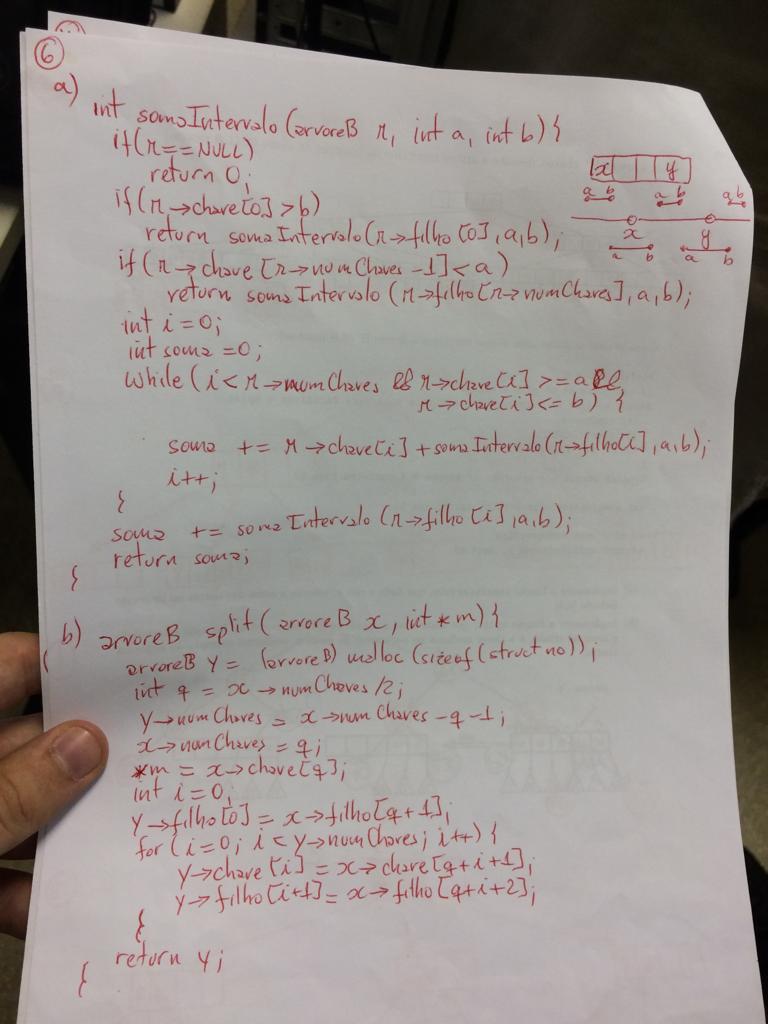 6
a) int somaIntervalo (arvoreB r, int a, int b) {
if(r==NULL)
return 0;
if(r→chave[0]>b)
return somaIntervalo(r→filho[0],a,b);
if(r→chave[r→numChaves-1]<a)
return somaIntervalo(r→filho[r→numChaves],a,b);
int i=0;
int soma=0;
while(i<r→numChaves && r→chave[i]>=a &&
r→chave[i]<=b) {
soma += r→chave[i]+somaIntervalo(r→filho[i],a,b);
i++;
}
soma += somaIntervalo(r→filho[i],a,b);
return soma;
}
x y
a b a b a b
x y
a b a b
b) arvoreB split(arvoreB x, int *m) {
arvoreB y = (arvoreB) malloc (sizeof(struct no));
int q = x→numChaves/2;
y→numChaves = x→numChaves-q-1;
x→numChaves = q;
*m = x→chave[q];
int i=0;
y→filho[0] = x→filho[q+1];
for(i=0; i<y→numChaves; i++) {
y→chave[i] = x→chave[q+i+1];
y→filho[i+1] = x→filho[q+i+2];
}
return y;
}